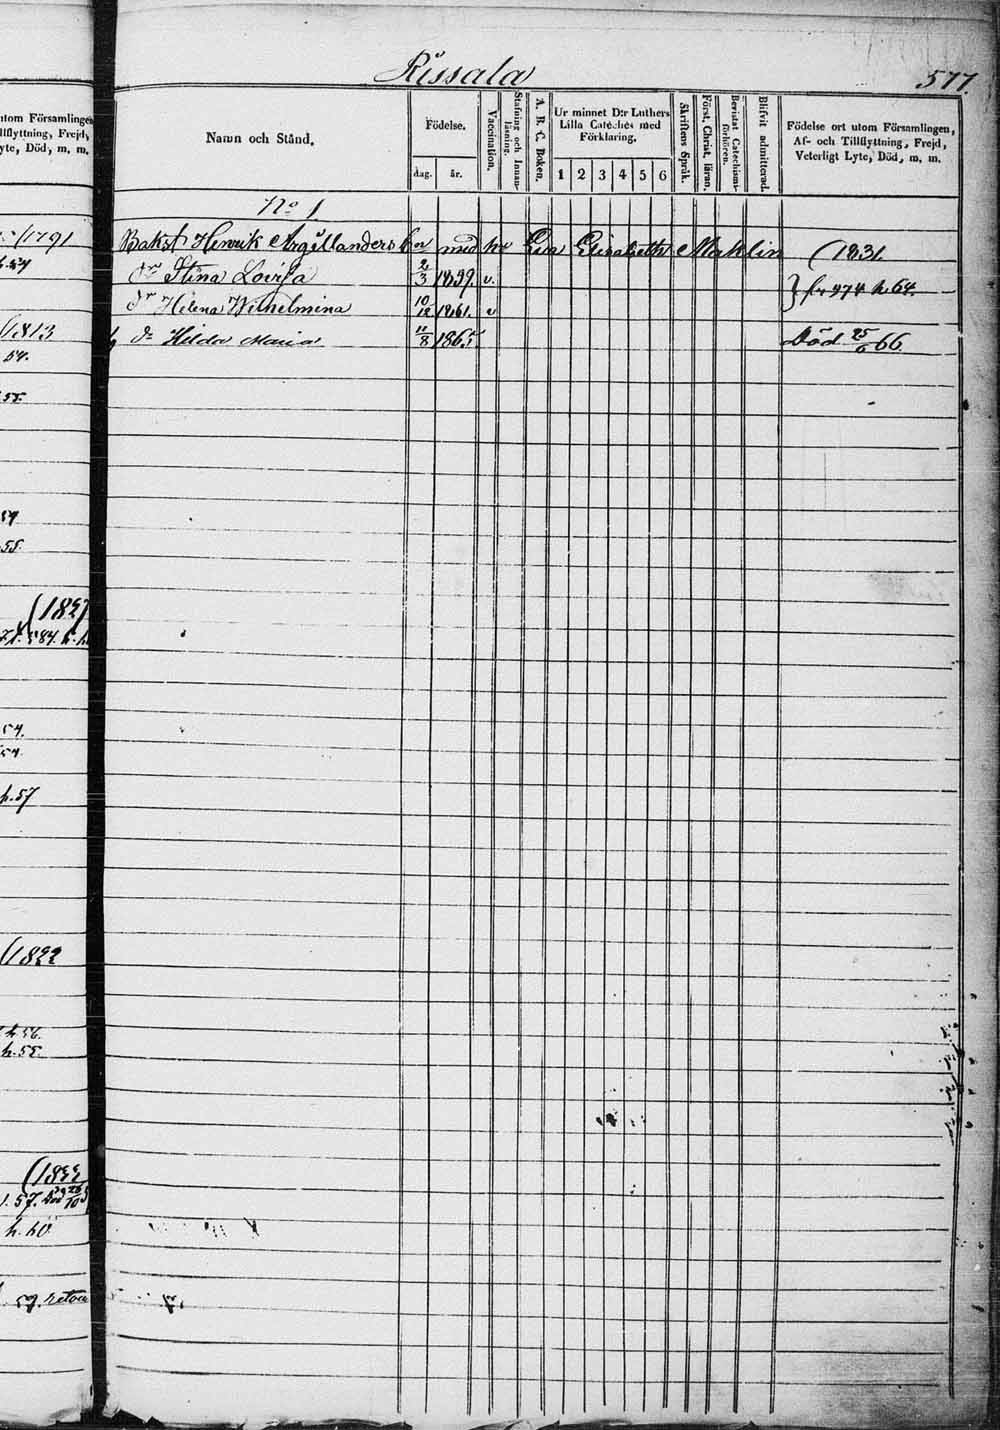 Rissala
577.
utom Församlingen
Tillflyttning, Frejd,
Lyte, Död, m. m.
Namn och Stånd.
Födelse.
dag.
år.
Vaccination.
Stafning och Innan-
läsning.
A. B. C. Boken.
Ur minnet D:r Luthers
Lilla Catéchés med
Förklaring.
1 2 3 4 5 6
Skriftens Språk.
Först. Christ. läran.
Bevistat Catechismi-
förhören.
Blifvit admitterad.
Födelse ort utom Församlingen,
Af- och Tillflyttning, Frejd,
Veterligt Lyte, Död, m. m.
No 1
Bakst Henrik Argillanders med Eva Elisabeth Maklin (1831.
dr Stina Lovisa 2/3 1859. v.
fr 474 h 64.
dr Helena Wilhelmina 10/12 1861. v
dr Hilda Maria 11/8 1865. Död 25/6 66.
(1791
h.54
(1813
54.
55.
54
55.
(1827
584. h.
54.
54.
h.57
(1822
h.56.
h.55.
(1833
57. Död
h. 60
59. retour